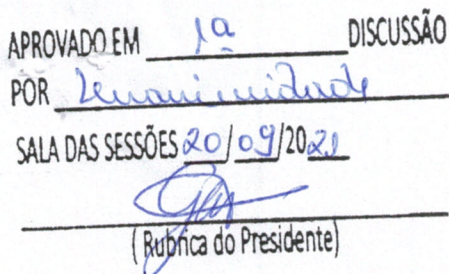 APROVADO EM 1ª DISCUSSÃO
POR Unanimidade
SALA DAS SESSÕES 20/09/2021
( Rubrica do Presidente)